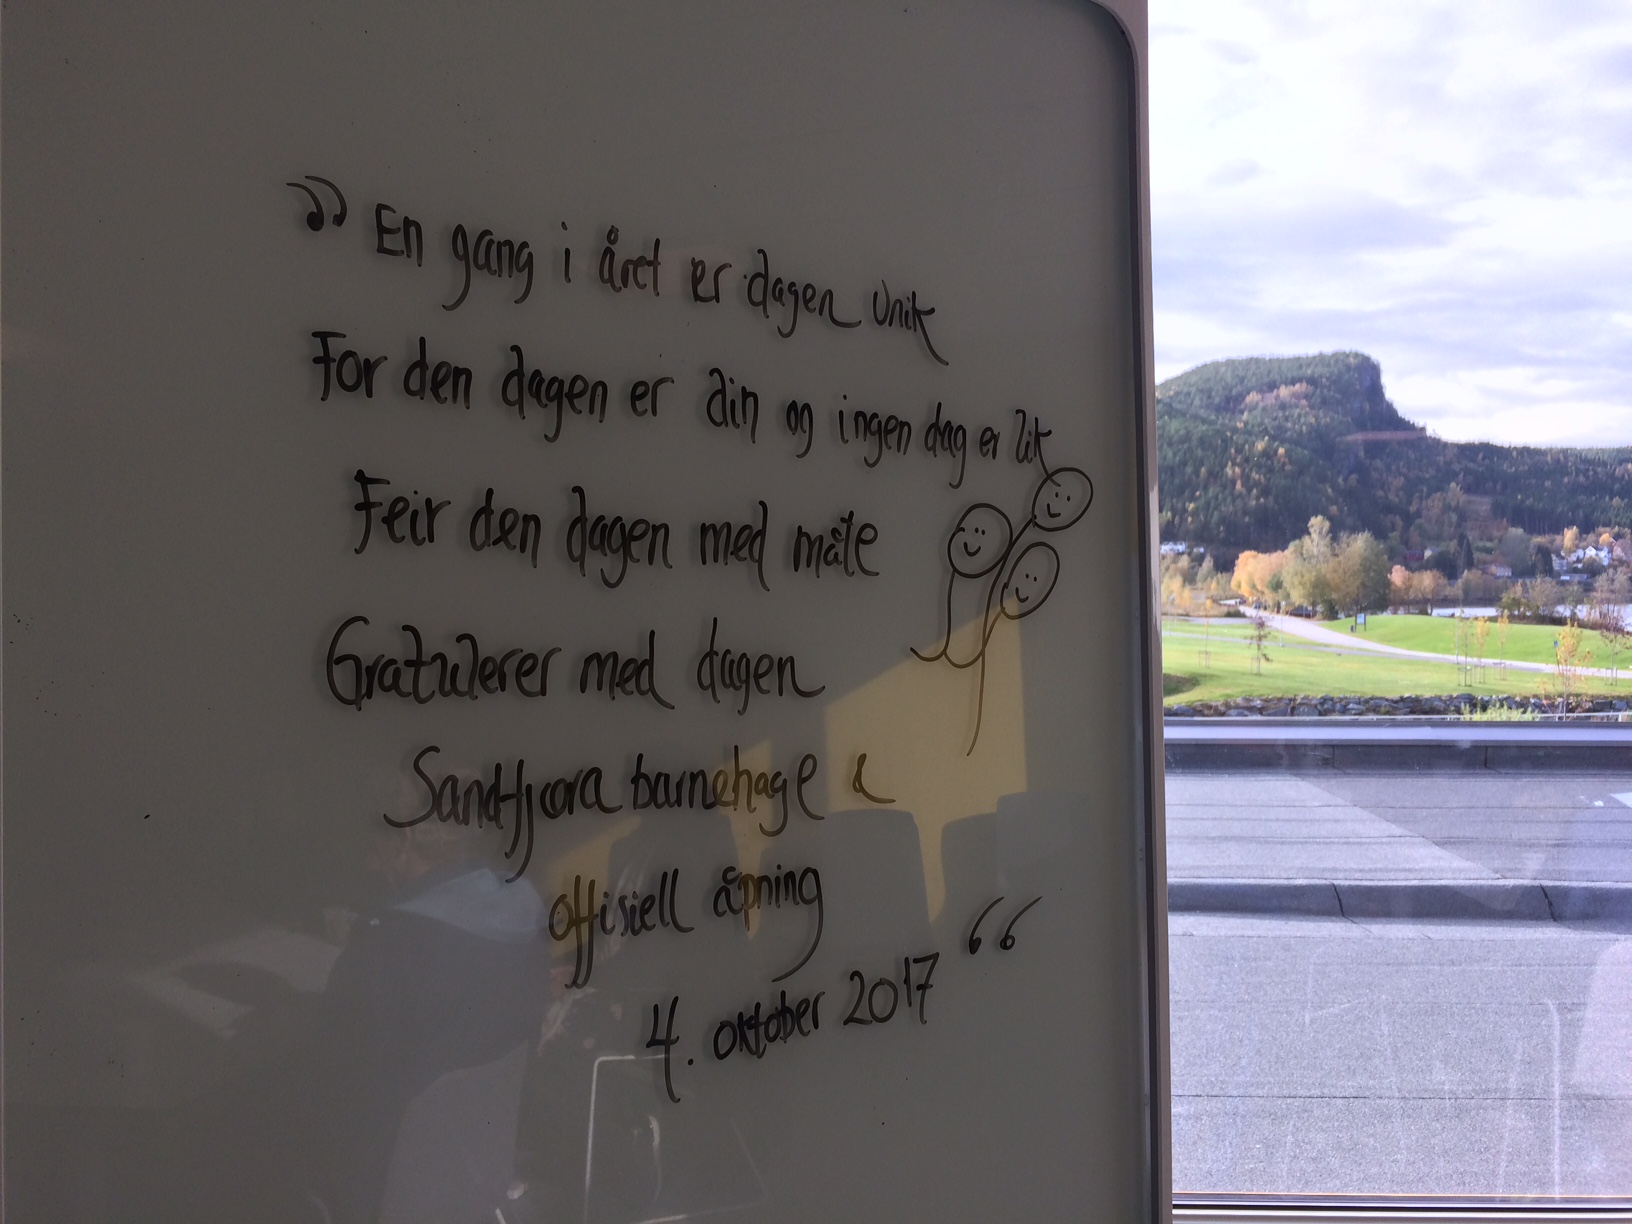 ” En gang i året er dagen unik
For den dagen er din og ingen dag er lik
Feir den dagen med måte
Gratulerer med dagen
Sandfjæra barnehage &
offisiell åpning
4. oktober 2017 “